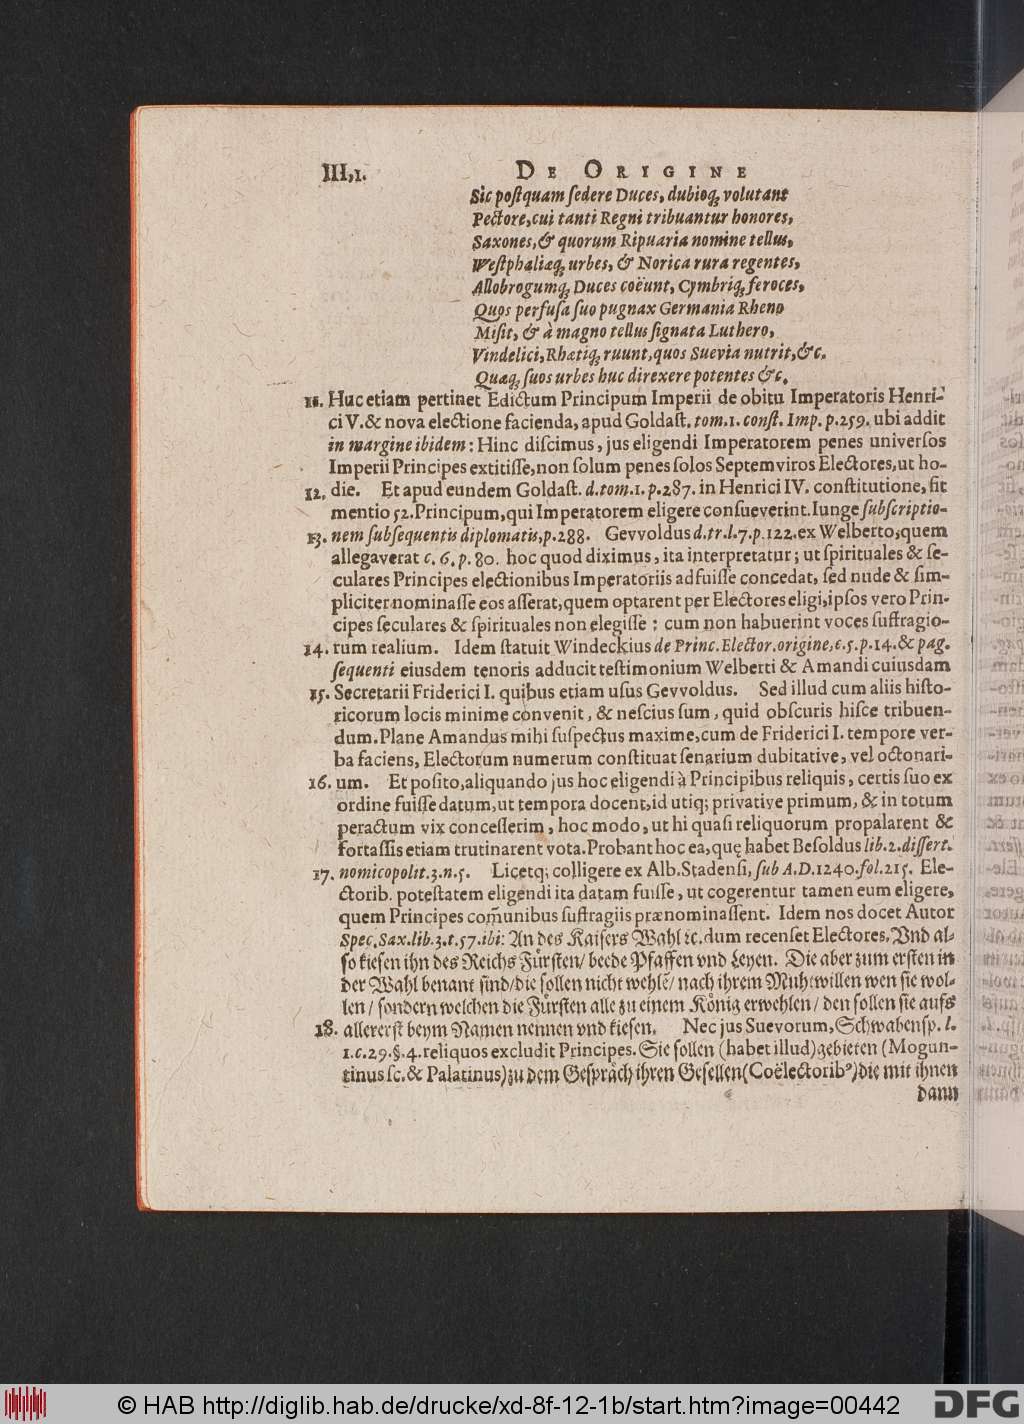 III,1. DE ORIGINE
Sic postquam sedere Duces, dubioq; volutant
Pectore, cui tanti Regni tribuantur honores,
Saxones, & quorum Ripuaria nomine tellus,
Westphaliæq; urbes, & Norica rura regentes,
Allobrogumq; Duces coëunt, Cymbriq; feroces,
Quos perfusa suo pugnax Germania Rheno
Misit, & à magno tellus signata Luthero,
Vindelici, Rhætiq; ruunt, quos Suevia nutrit, &c.
Quæq; suos urbes huc direxere potentes &c.
11. Huc etiam pertinet Edictum Principum Imperii de obitu Imperatoris Henri-
ci V. & nova electione facienda, apud Goldast. tom. 1. const. Imp. p. 259. ubi addit
in margine ibidem: Hinc discimus, jus eligendi Imperatorem penes universos
Imperii Principes extitisse, non solum penes solos Septemviros Electores, ut ho-
12. die. Et apud eundem Goldast. d. tom. 1. p. 287. in Henrici IV. constitutione, fit
mentio 52. Principum, qui Imperatorem eligere consueverint. Iunge subscriptio-
13. nem subsequentis diplomatis, p. 288. Gevvoldus d. tr. l. 7. p. 122. ex Welberto, quem
allegaverat c. 6. p. 80. hoc quod diximus, ita interpretatur; ut spirituales & se-
culares Principes electionibus Imperatoriis adfuisse concedat, sed nude & sim-
pliciter nominasse eos asserat, quem optarent per Electores eligi, ipsos vero Prin-
cipes seculares & spirituales non elegisse: cum non habuerint voces suffragio-
14. rum realium. Idem statuit Windeckius de Princ. Elector. origine, c. 5. p. 14. & pag.
sequenti eiusdem tenoris adducit testimonium Welberti & Amandi cuiusdam
15. Secretarii Friderici I. quibus etiam usus Gevvoldus. Sed illud cum aliis histo-
ricorum locis minime convenit, & nescius sum, quid obscuris hisce tribuen-
dum. Plane Amandus mihi suspectus maxime, cum de Friderici I. tempore ver-
ba faciens, Electorum numerum constituat senarium dubitative, vel octonari-
16. um. Et posito, aliquando jus hoc eligendi à Principibus reliquis, certis suo ex
ordine fuisse datum, ut tempora docent, id utiq; privative primum, & in totum
peractum vix concesserim, hoc modo, ut hi quasi reliquorum propalarent &
fortassis etiam trutinarent vota. Probant hoc ea, quę habet Besoldus lib. 2. dissert.
17. nomicopolit. 3. n. 5. Licetq; colligere ex Alb. Stadensi, sub A.D. 1240. fol. 215. Ele-
ctorib. potestatem eligendi ita datam fuisse, ut cogerentur tamen eum eligere,
quem Principes com̃unibus suffragiis prænominassent. Idem nos docet Autor
Spec. Sax. lib. 3. t. 57. ibi: An des Kaisers Wahl ꝛc. dum recenset Electores, Vnd al-
so kiesen ihn des Reichs Fürsten/ beede Pfaffen vnd Leyen. Die aber zum ersten in
der Wahl benant sind/ die sollen nicht wehlẽ/ nach ihrem Muhtwillen wen sie wol-
len/ sondern welchen die Fürsten alle zu einem König erwehlen/ den sollen sie aufs
18. allererst beym Namen nennen vnd kiesen. Nec jus Suevorum, Schwabensp. l.
1. c. 29. §. 4. reliquos excludit Principes. Sie sollen (habet illud) gebieten (Mogun-
tinus sc. & Palatinus) zu dem Gespräch ihren Gesellen (Coëlectoribꝰ) die mit ihnen
dann
© HAB http://diglib.hab.de/drucke/xd-8f-12-1b/start.htm?image=00442
DFG